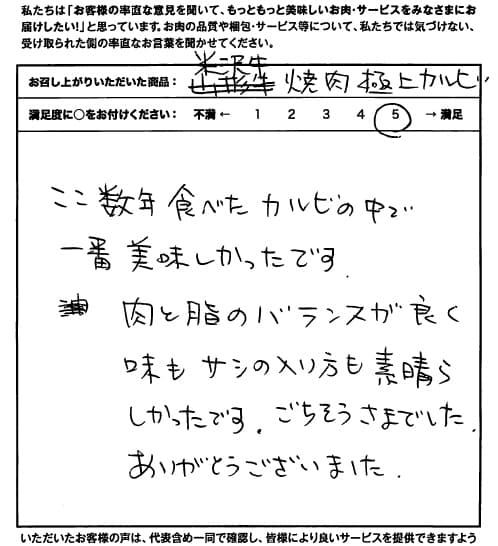 私たちは「お客様の率直な意見を聞いて、もっともっと美味しいお肉・サービスをみなさまにお
届けしたい!」と思っています。お肉の品質や梱包・サービス等について、私たちでは気づけない、
受け取られた側の率直なお言葉を聞かせてください。
米沢牛
お召し上がりいただいた商品： 山形牛 焼肉 極上カルビ
満足度に○をお付けください： 不満 ← 1 2 3 4 5 → 満足
ここ数年食べたカルビの中で
一番美味しかったです。
肉と脂のバランスが良く
味もサシの入り方も素晴ら
しかったです。ごちそうさまでした。
ありがとうございました。
いただいたお客様の声は、代表含め一同で確認し、皆様により良いサービスを提供できますよう